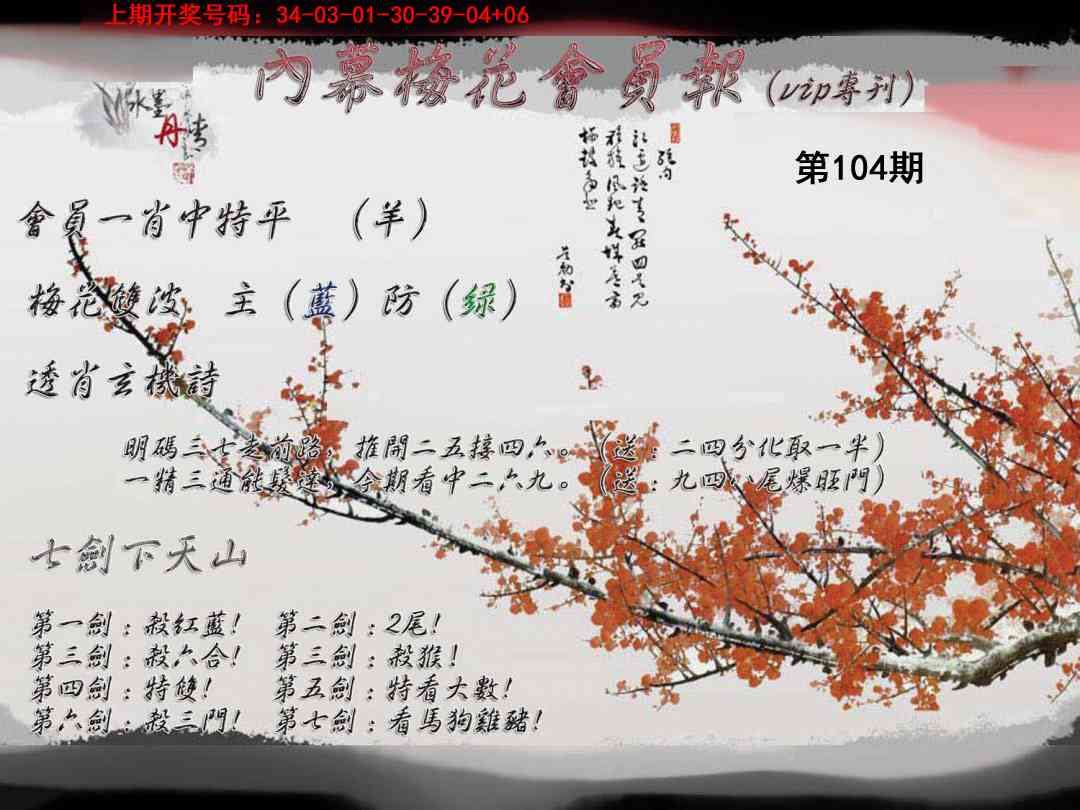 上期开奖号码：34-03-01-30-39-04+06
內幕梅花會員報（vip專刊）
水墨
丹青
第104期
會員一肖中特平　（羊）
梅花雙波　主（藍）防（绿）
透肖玄機詩
明碼三七走前路，推開二五接四六。（送：二四分化取一半）
一精三通能發達，今期看中二六九。（送：九四八尾爆旺門）
七劍下天山
第一劍：殺红藍！　第二劍：2尾！
第三劍：殺六合！　第三劍：殺猴！
第四劍：特雙！　第五劍：特看大數！
第六劍：殺三門！　第七劍：看馬狗雞豬！